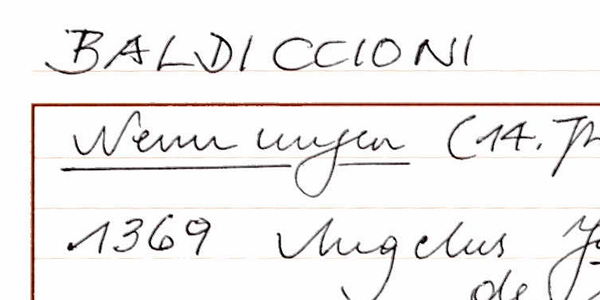 BALDICCIONI
Nennungen (14. Jh
1369 Angelus
de